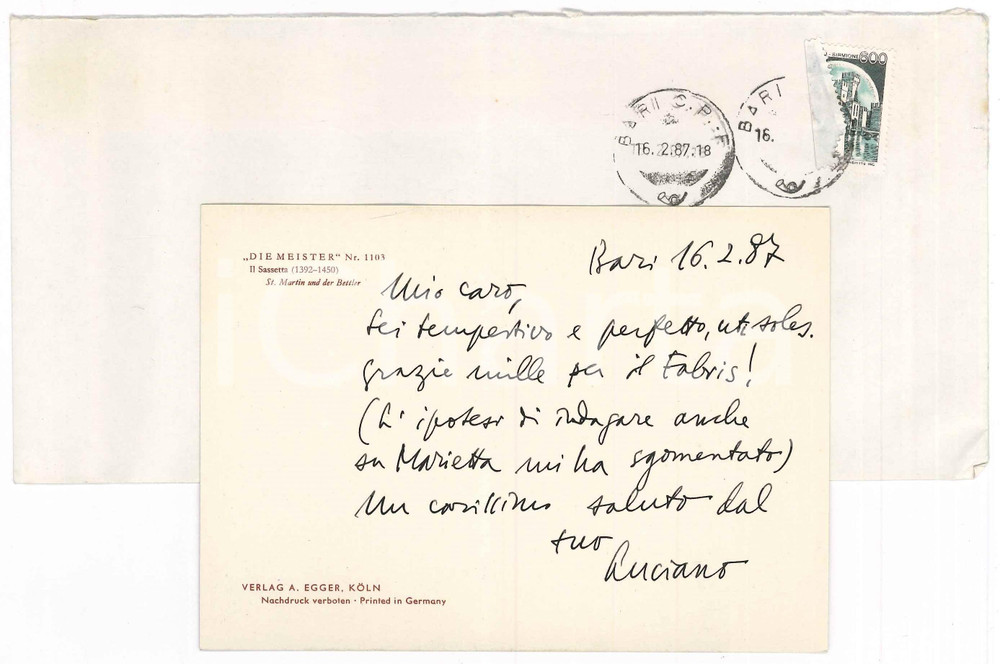 600
BARI C.P.-F
16.2.87.18
BARI
16.
„DIE MEISTER“ Nr. 1103
Il Sassetta (1392–1450)
St. Martin und der Bettler
Bari 16.2.87
Mio caro,
sei tempestivo e perfetto, uti soles.
grazie mille per il Fabris!
(L'ipotesi di indagare anche
su Marietta mi ha sgomentato)
Un carissimo saluto dal
tuo
Luciano
VERLAG A. EGGER, KÖLN
Nachdruck verboten · Printed in Germany